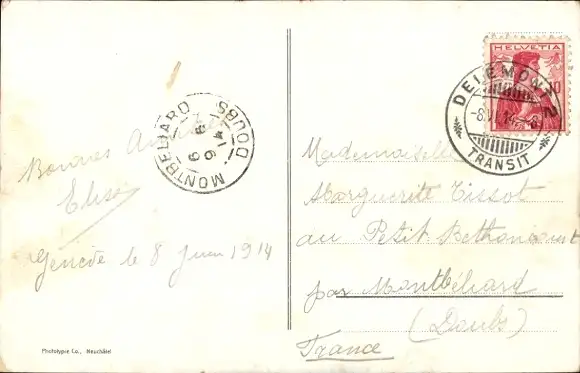 Bonnes Amitiés
Elise
Genève le 8 Juin 1914
Phototypie Co., Neuchâtel
MONTBELIARD DOUBS
9 6 14
HELVETIA
10
DELÉMONT 2
-8.VI.14.-8
TRANSIT
Mademoiselle
Marguerite Tissot
au Petit Bethoncourt
par Montbéliard
(Doubs)
France